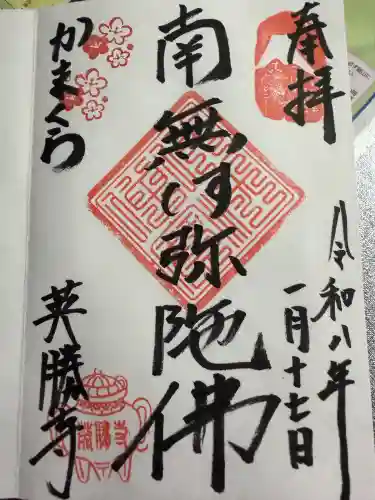 奉拝
令和八年
一月十七日
南無す弥陀佛
かまくら
英勝寺